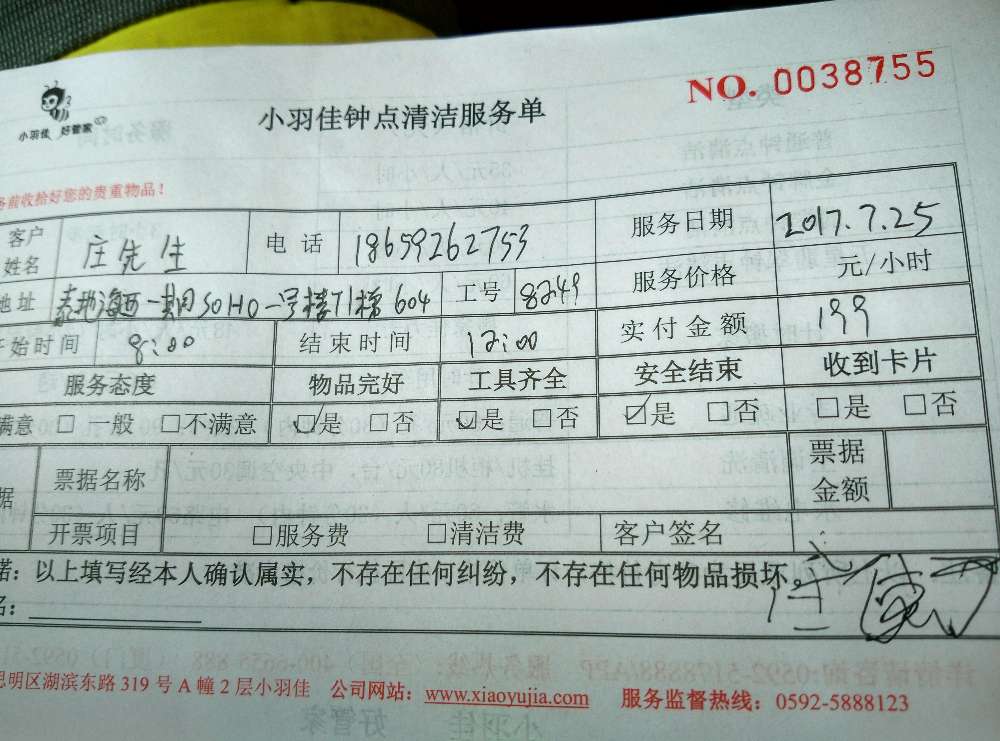 NO. 0038755
小羽佳 好管家
小羽佳钟点清洁服务单
务前收拾好您的贵重物品！
客户姓名 庄先生 电话 18659262753 服务日期 2017.7.25
地址 泰地海西一期SOHO一号楼T1梯604 工号 8249 服务价格 元/小时
开始时间 8:00 结束时间 12:00 实付金额 199
服务态度 物品完好 工具齐全 安全结束 收到卡片
满意 □ 一般 □不满意 ☑是 □否 ☑是 □否 ☑是 □否 □是 □否
据 票据名称 票据金额
开票项目 □服务费 □清洁费 客户签名
诺：以上填写经本人确认属实，不存在任何纠纷，不存在任何物品损坏。
名：
思明区湖滨东路 319 号 A 幢 2 层小羽佳 公司网站：www.xiaoyujia.com 服务监督热线：0592-5888123